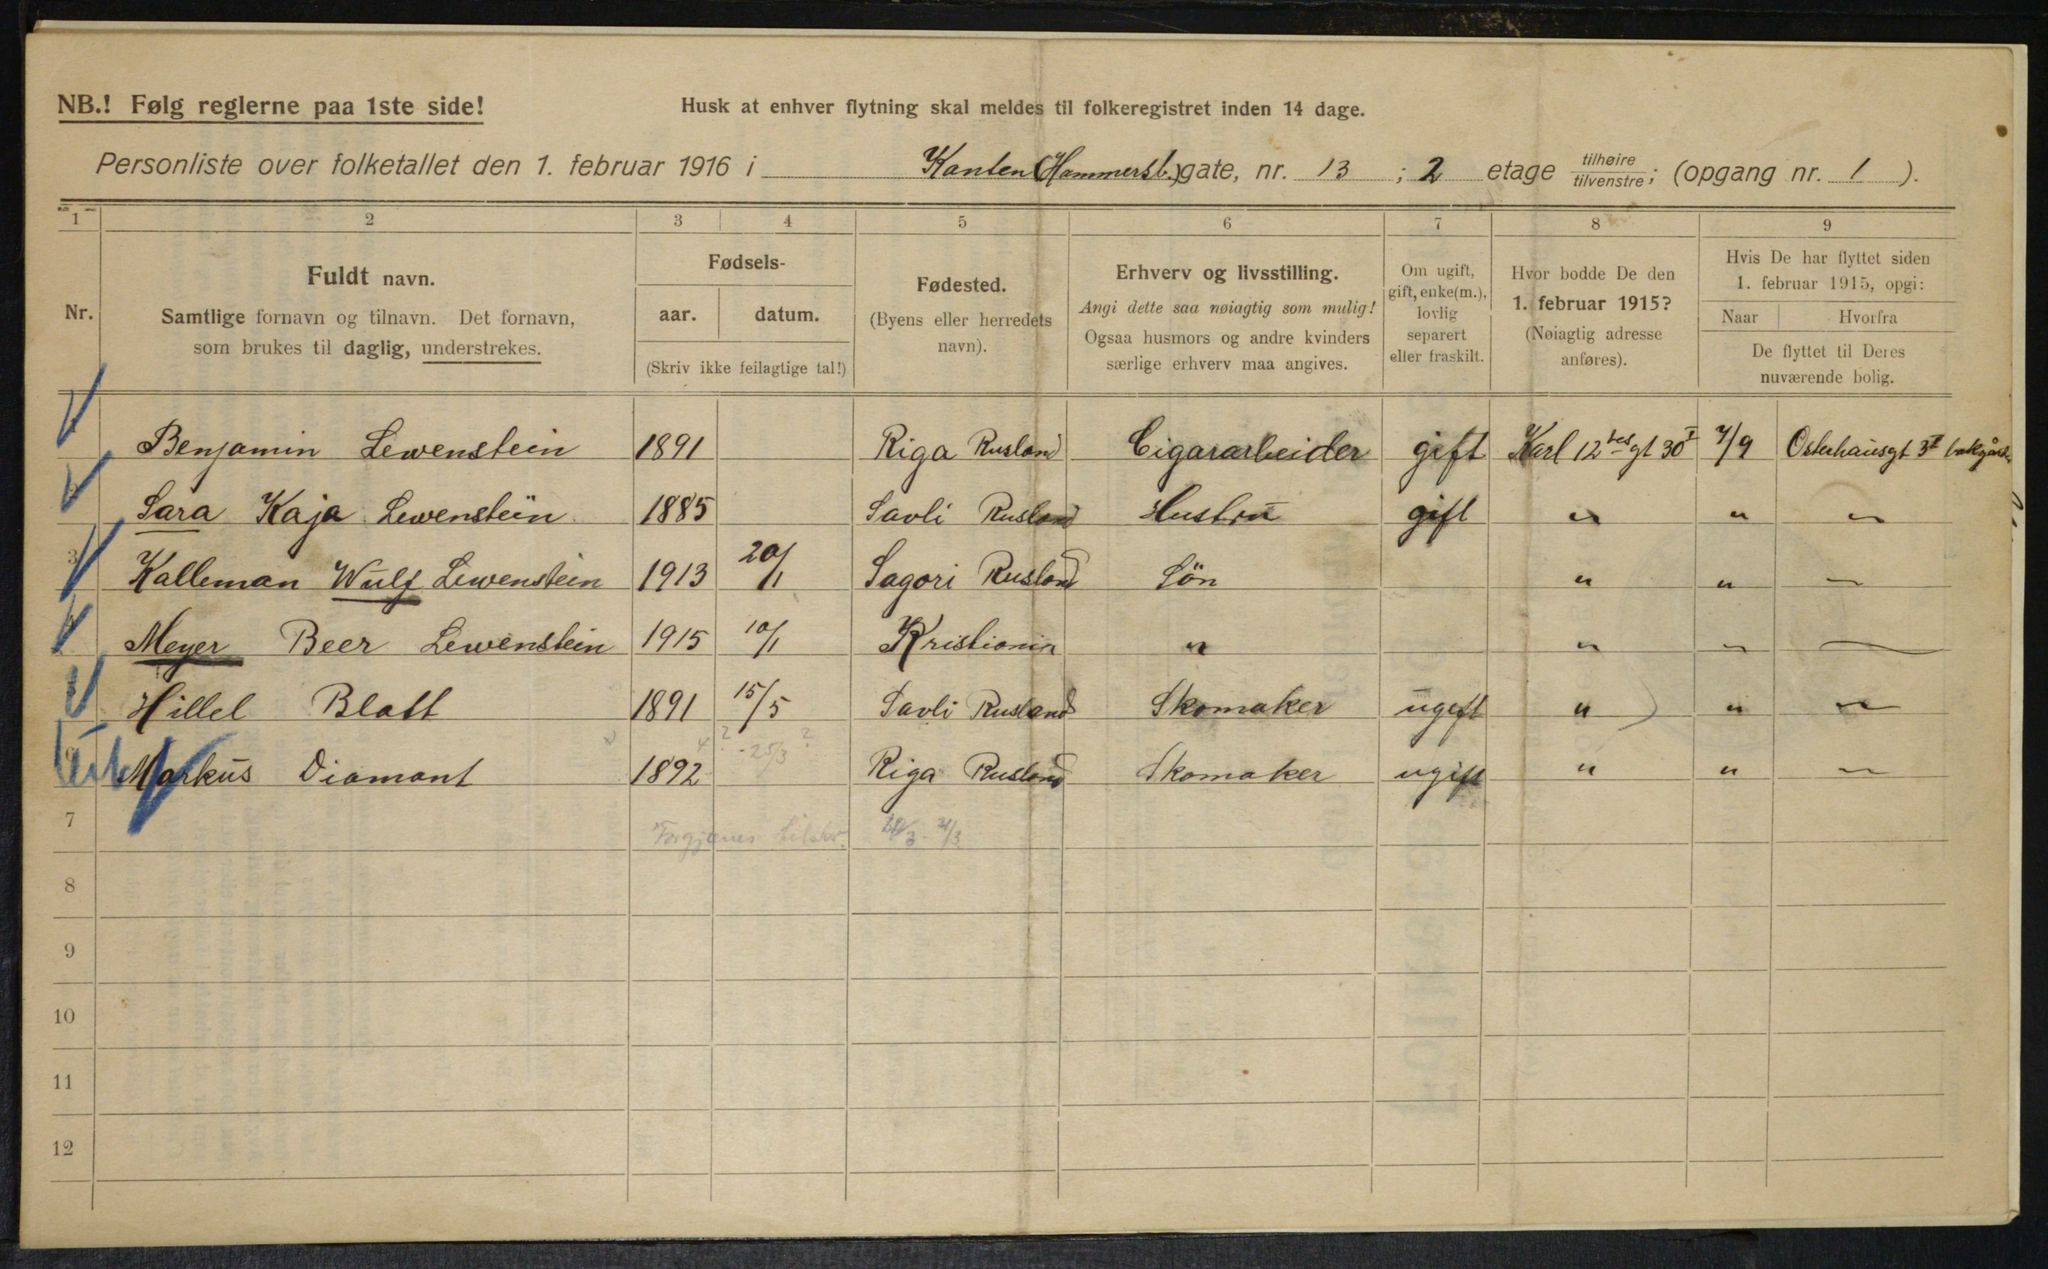 NB.! Følg reglerne paa 1ste side!
Husk at enhver flytning skal meldes til folkeregistret inden 14 dage.
Personliste over folketallet den 1. februar 1916 i Kanten (Hammersb.) gate, nr. 13 ; 2 etage tilhøire tilvenstre; (opgang nr. 1 ).
1 2 3 4 5 6 7 8 9
Nr.
Fuldt navn.
Samtlige fornavn og tilnavn. Det fornavn,
som brukes til daglig, understrekes.
Fødsels-
aar. datum.
(Skriv ikke feilagtige tal!)
Fødested.
(Byens eller herredets
navn).
Erhverv og livsstilling.
Angi dette saa nøiagtig som mulig!
Ogsaa husmors og andre kvinders
særlige erhverv maa angives.
Om ugift,
gift, enke(m.),
lovlig
separert
eller fraskilt.
Hvor bodde De den
1. februar 1915?
(Nøiagtig adresse
anføres).
Hvis De har flyttet siden
1. februar 1915, opgi:
Naar Hvorfra
De flyttet til Deres
nuværende bolig.
Benjamin Lewenstein 1891 Riga Rusland Cigararbeider gift Karl 12tes gt 30 I 7/9 Osterhausgt 3 II bakgård
Sara Kaja Lewenstein 1885 Savli Rusland Hustru gift " " "
3 Kalleman Wulf Lewenstein 1913 20/1 Sagori Rusland Sön " " "
Meyer Beer Lewenstein 1915 10/1 Kristiania " " " "
Hillel Blatt 1891 15/5 Savli Rusland Skomaker ugift " " "
6 Markus Diamant 1892 4 ? 25/3 ? Riga Rusland Skomaker ugift " " "
7
8
9
10
11
12